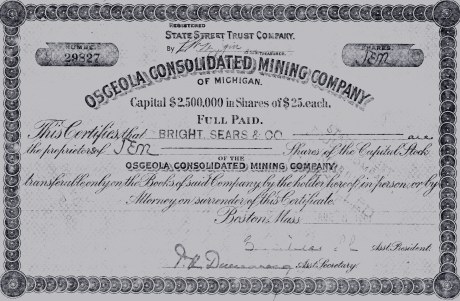 REGISTERED
STATE STREET TRUST COMPANY.
By
NUMBER
29827
SHARES
Ten
OSCEOLA CONSOLIDATED MINING COMPANY
OF MICHIGAN.
Capital $2,500,000 in Shares of $25. each.
FULL PAID.
This Certifies that BRIGHT, SEARS & CO are
the proprietors of Ten Shares of the Capital Stock
OF THE
OSCEOLA CONSOLIDATED MINING COMPANY
transferable only on the Books of said Company by the holder hereof in person or by
Attorney on surrender of this Certificate.
Boston, Mass
Asst. President.
Asst. Secretary.